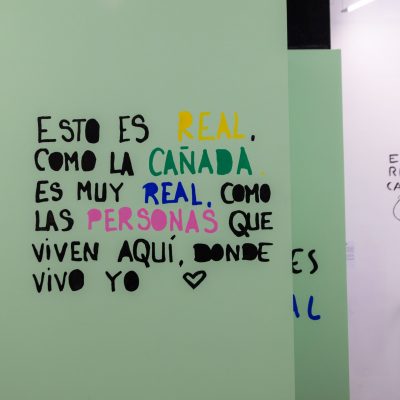 ESTO ES REAL.
COMO LA CAÑADA.
ES MUY REAL. COMO
LAS PERSONAS QUE
VIVEN AQUÍ, DONDE
VIVO YO ♡
ES
AL
E
R
CA